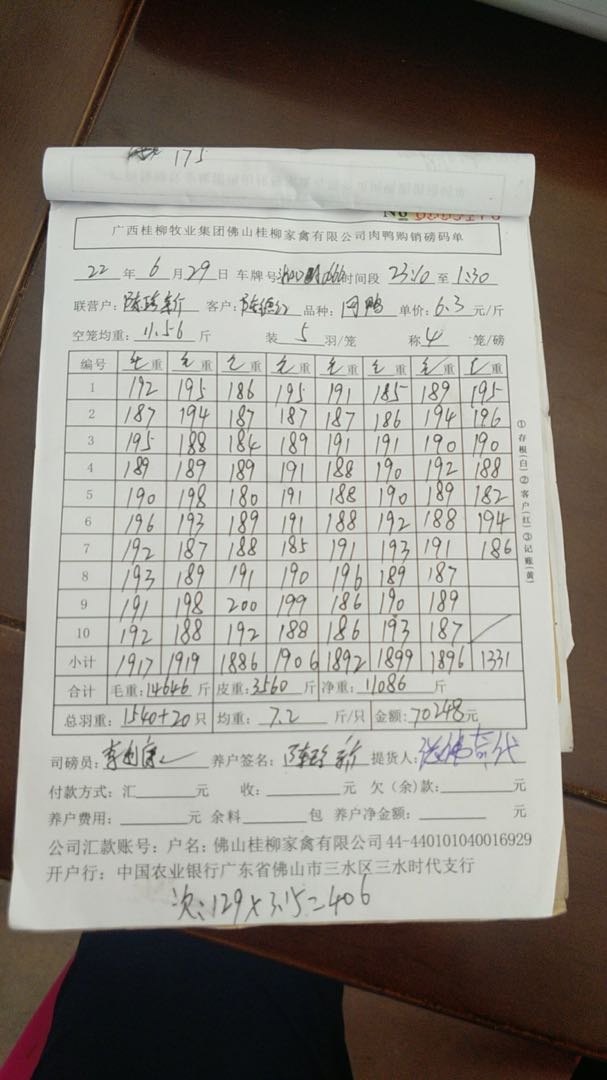 175
No 0005176
广西桂柳牧业集团佛山桂柳家禽有限公司肉鸭购销磅码单
22 年 6 月 29 日 车牌号 时间段 23:10 至 1:30
联营户: 陈珍新 客户: 品种: 肉鸭 单价: 6.3 元/斤
空笼均重: 11.56 斤 装 5 羽/笼 称 4 笼/磅
编号 毛重 毛重 毛重 毛重 毛重 毛重 毛重 毛重
1 192 195 186 195 191 185 189 195
2 187 194 187 187 187 186 194 196
3 195 188 184 189 191 191 190 190
4 189 189 189 191 188 190 192 188
5 190 198 180 191 188 190 189 182
6 196 193 189 191 188 192 188 194
7 192 187 188 185 191 193 191 186
8 193 189 191 190 196 189 187
9 191 198 200 199 186 190 189
10 192 188 192 188 186 193 187
小计 1917 1919 1886 1906 1892 1899 1896 1331
合计 毛重: 14646 斤 皮重: 3560 斤 净重: 11086 斤
总羽重: 1540+20 只 均重: 7.2 斤/只 金额: 70248 元
司磅员: 养户签名: 陈珍新 提货人:
付款方式: 汇 元 收: 元 欠(余)款: 元
养户费用: 元 余料 包 养户净金额: 元
公司汇款账号: 户名: 佛山桂柳家禽有限公司 44-440101040016929
开户行: 中国农业银行广东省佛山市三水区三水时代支行
次: 129×3.15=406
①存根(白)②客户(红)③记账(黄)